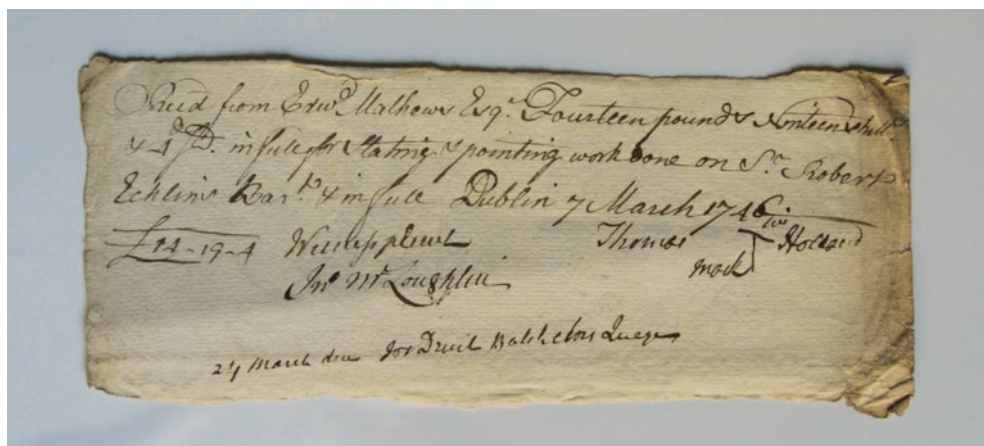 Rec'd from Edwd. Mathews Esqr. Fourteen pounds Ninteen shill
& 4d. in full for Slating & pointing work done on Sr. Robert
Echlins Bart. & in full Dublin 7 March 1746
his
£14-19-4 Witness present Thomas T Holland
Jno. Mc Loughlin mark
24 March Batchelors Quay